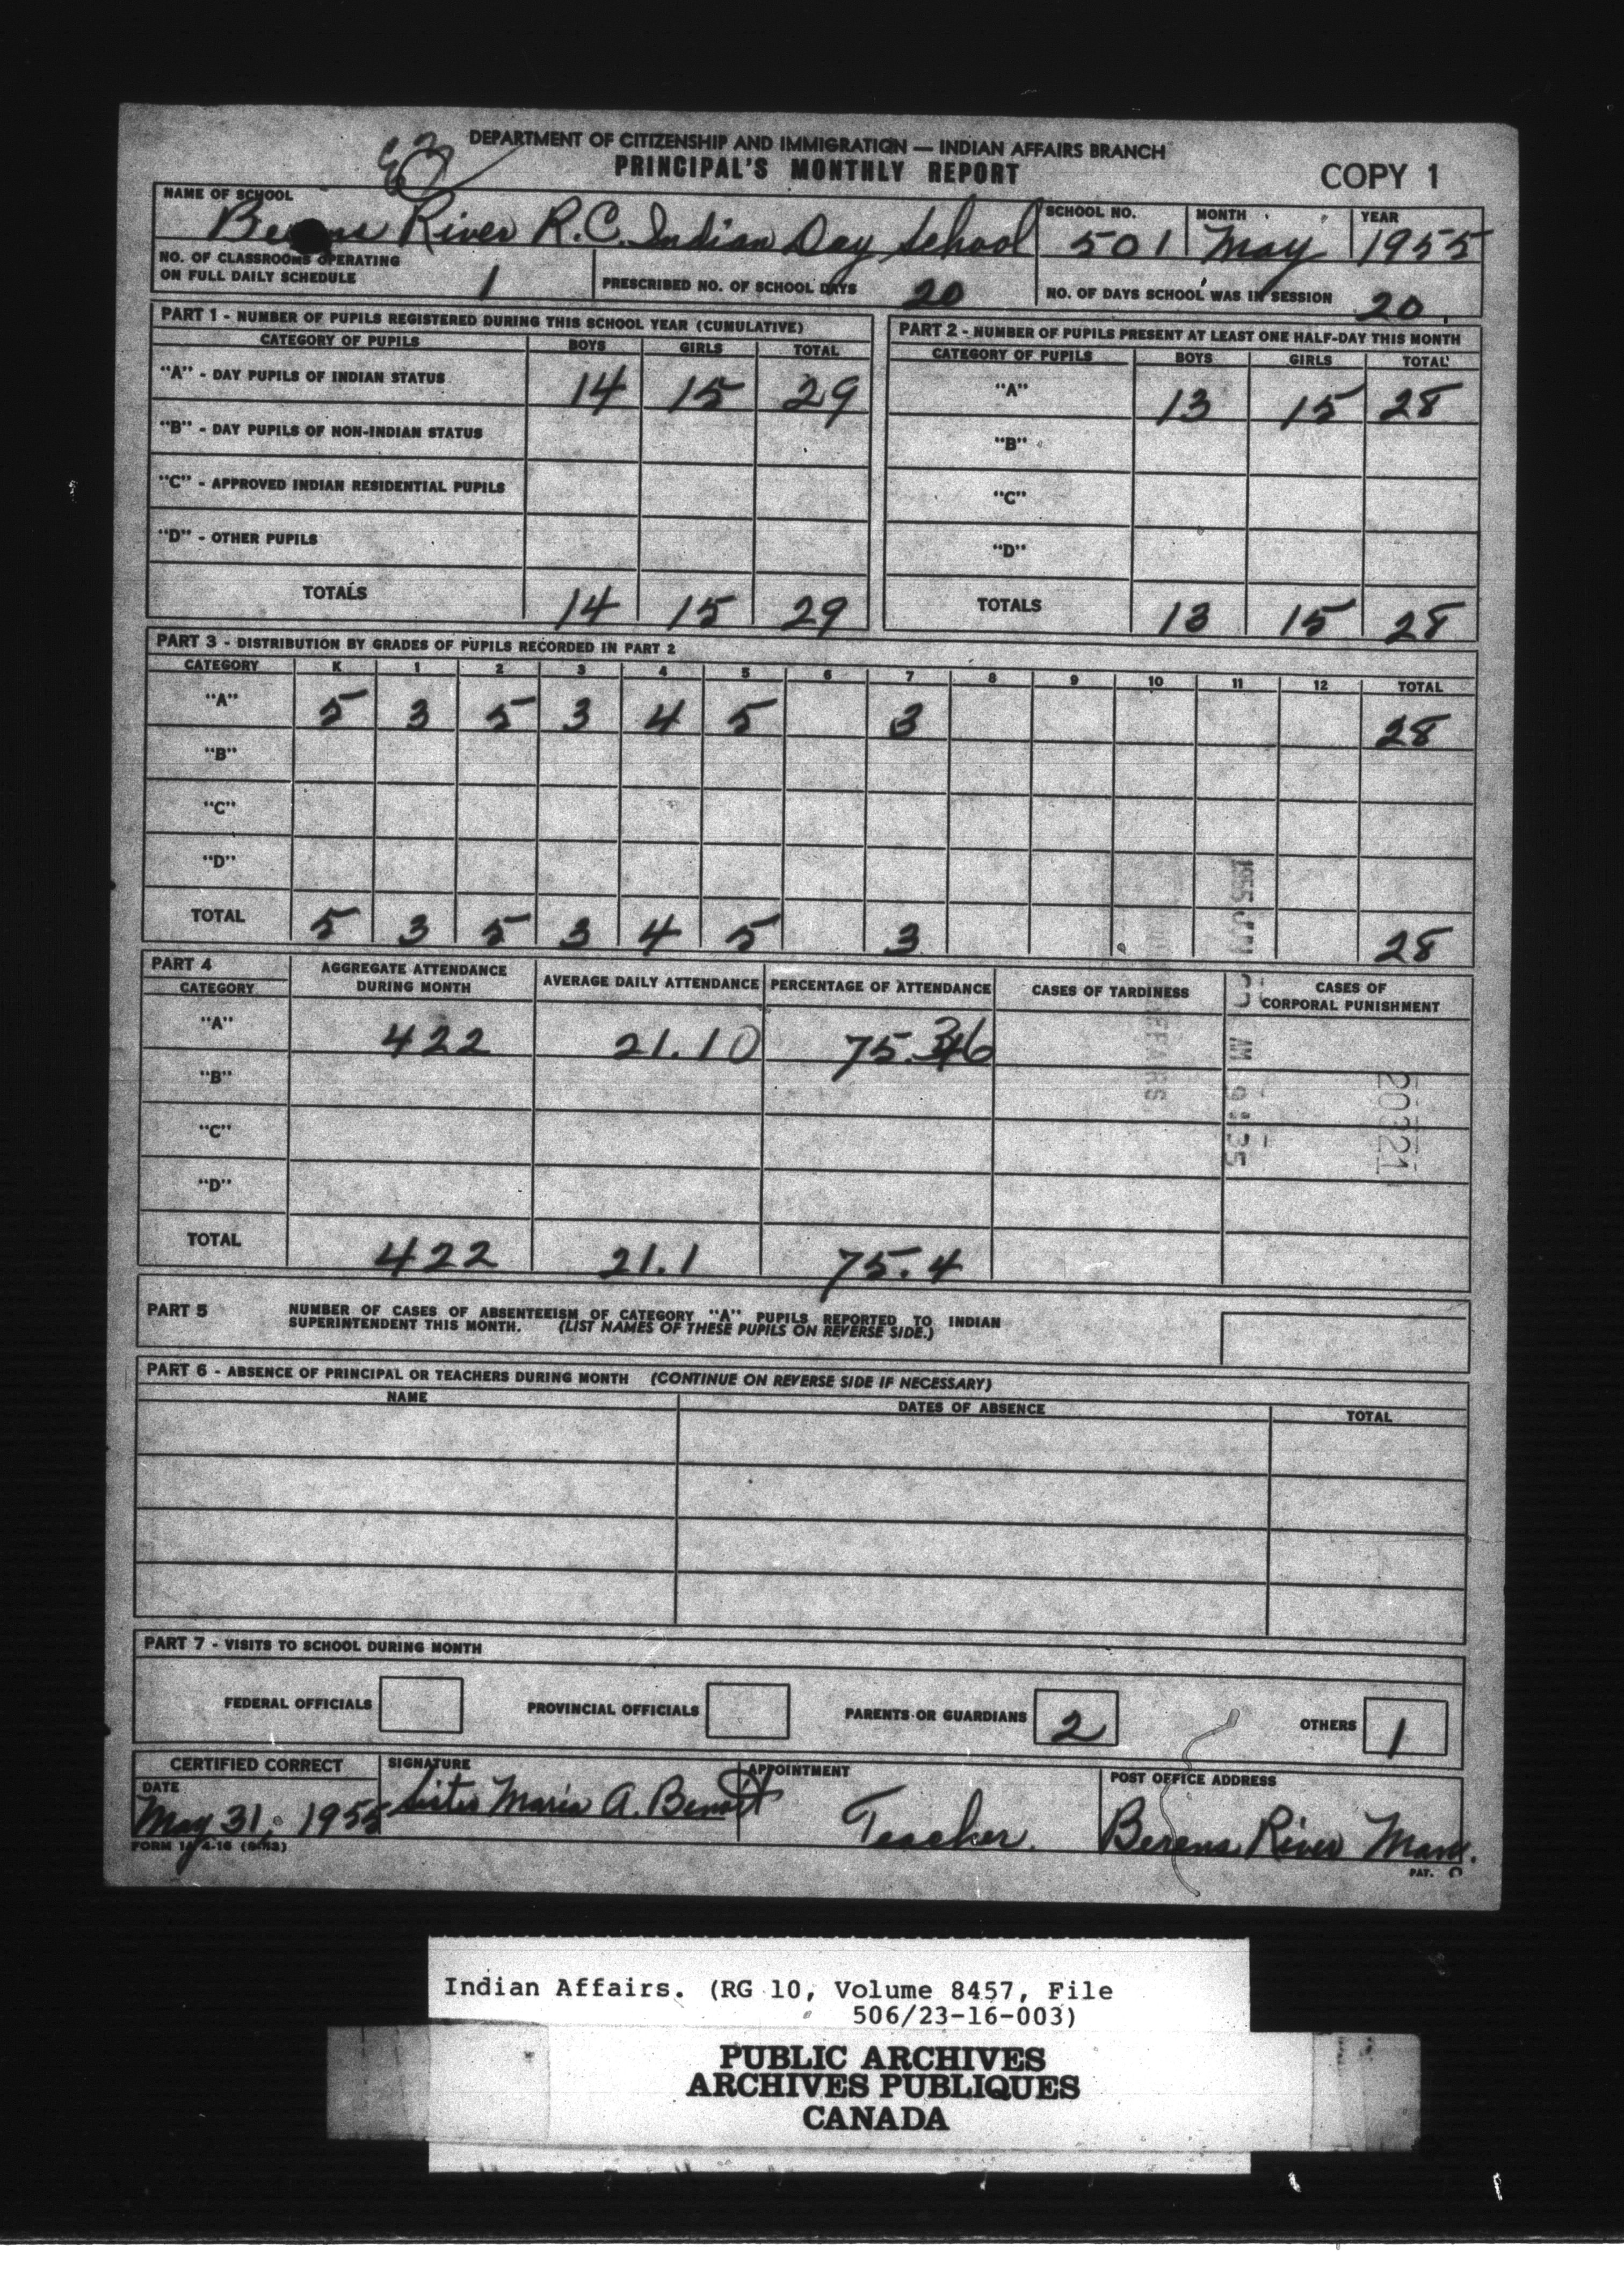 DEPARTMENT OF CITIZENSHIP AND IMMIGRATION — INDIAN AFFAIRS BRANCH
PRINCIPAL'S MONTHLY REPORT
COPY 1
NAME OF SCHOOL Berens River R.C. Indian Day School SCHOOL NO. 501 MONTH May YEAR 1955
NO. OF CLASSROOMS OPERATING
ON FULL DAILY SCHEDULE 1 PRESCRIBED NO. OF SCHOOL DAYS 20 NO. OF DAYS SCHOOL WAS IN SESSION 20
PART 1 - NUMBER OF PUPILS REGISTERED DURING THIS SCHOOL YEAR (CUMULATIVE)
CATEGORY OF PUPILS BOYS GIRLS TOTAL
"A" - DAY PUPILS OF INDIAN STATUS 14 15 29
"B" - DAY PUPILS OF NON-INDIAN STATUS
"C" - APPROVED INDIAN RESIDENTIAL PUPILS
"D" - OTHER PUPILS
TOTALS 14 15 29
PART 2 - NUMBER OF PUPILS PRESENT AT LEAST ONE HALF-DAY THIS MONTH
CATEGORY OF PUPILS BOYS GIRLS TOTAL
"A" 13 15 28
"B"
"C"
"D"
TOTALS 13 15 28
PART 3 - DISTRIBUTION BY GRADES OF PUPILS RECORDED IN PART 2
CATEGORY K 1 2 3 4 5 6 7 8 9 10 11 12 TOTAL
"A" 5 3 5 3 4 5 3 28
"B"
"C"
"D"
TOTAL 5 3 5 3 4 5 3 28
PART 4
CATEGORY AGGREGATE ATTENDANCE DURING MONTH AVERAGE DAILY ATTENDANCE PERCENTAGE OF ATTENDANCE CASES OF TARDINESS CASES OF CORPORAL PUNISHMENT
"A" 422 21.10 75.36
"B"
"C"
"D"
TOTAL 422 21.1 75.4
20321
PART 5 NUMBER OF CASES OF ABSENTEEISM OF CATEGORY "A" PUPILS REPORTED TO INDIAN
SUPERINTENDENT THIS MONTH. (LIST NAMES OF THESE PUPILS ON REVERSE SIDE.)
PART 6 - ABSENCE OF PRINCIPAL OR TEACHERS DURING MONTH (CONTINUE ON REVERSE SIDE IF NECESSARY)
NAME DATES OF ABSENCE TOTAL
PART 7 - VISITS TO SCHOOL DURING MONTH
FEDERAL OFFICIALS PROVINCIAL OFFICIALS PARENTS OR GUARDIANS 2 OTHERS 1
CERTIFIED CORRECT SIGNATURE APPOINTMENT POST OFFICE ADDRESS
DATE
May 31, 1955 Sister Maria A. Benoit Teacher. Berens River Man.
PAT.
Indian Affairs. (RG 10, Volume 8457, File
506/23-16-003)
PUBLIC ARCHIVES
ARCHIVES PUBLIQUES
CANADA